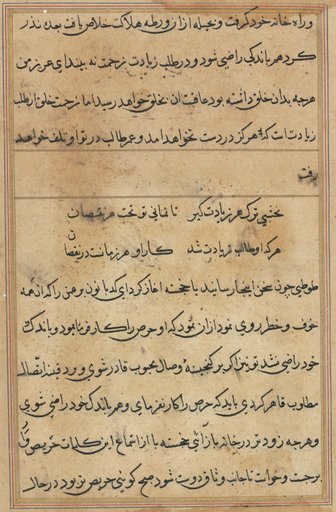 وراه خانه خود گرفت و بحیله از ان ورطه هلاکت خلاص یافت بعده نذر
کرد هر باندکی راضی شود و در طلب زیادت زحمت نه بیند ای عزیز من
هرچه بدان خلق داشته بود عاقبت ان بخلق خواهد رسید اما زحمت خلق از طلب
زیادت است که هرگز در دست نخواهد امد و عمر طالب در تو او تلف خواهد
رفت
نخشبی ترک هر زیادت گیر تا نمانی تو تحت هر نقصان
هر که او طالب زیادت شد کار او هر زمانست در نقصان
طوطی چون سخن اینجا رسانید با خجسته اغاز کرد ای کدبانو برهمن را که ان همه
خوف و خطر روی نمود از ان نمود که او حرص را کار فرما بود و باندک
خود راضی نشد تو نیز اگر بر گنجینه وصال محبوب قادر شوی و بر دفینه اتصال
مطلوب قاهر گردی باید که حرص را کار نفرمای و هم باندک خود راضی شوی
و هرچه زودتر در خانه باز آئی خجسته با از استماع این کلمات حریص
برجست و خواست تا جانب وثاق دوست شود صبح گوئی حریص تر بود در حال